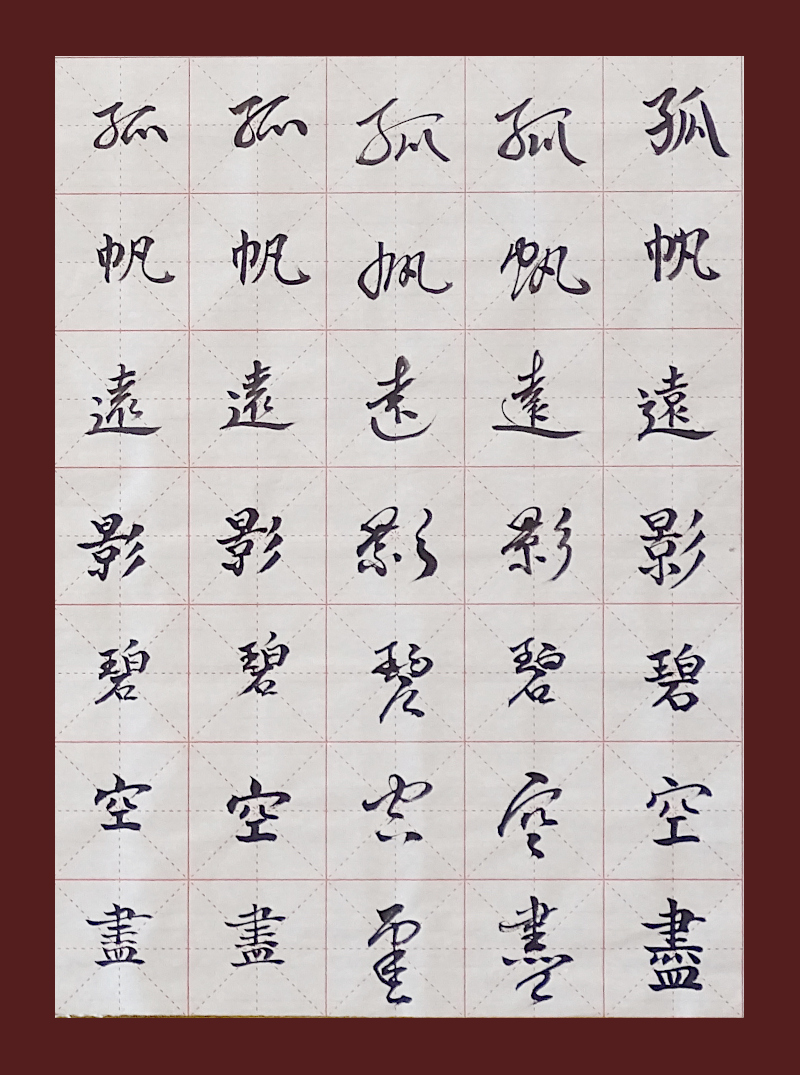 孤帆遠影碧空盡
孤帆遠影碧空盡
孤帆遠影碧空盡
孤帆遠影碧空盡
孤帆遠影碧空盡